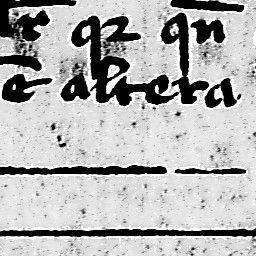 r qz qn
e altera